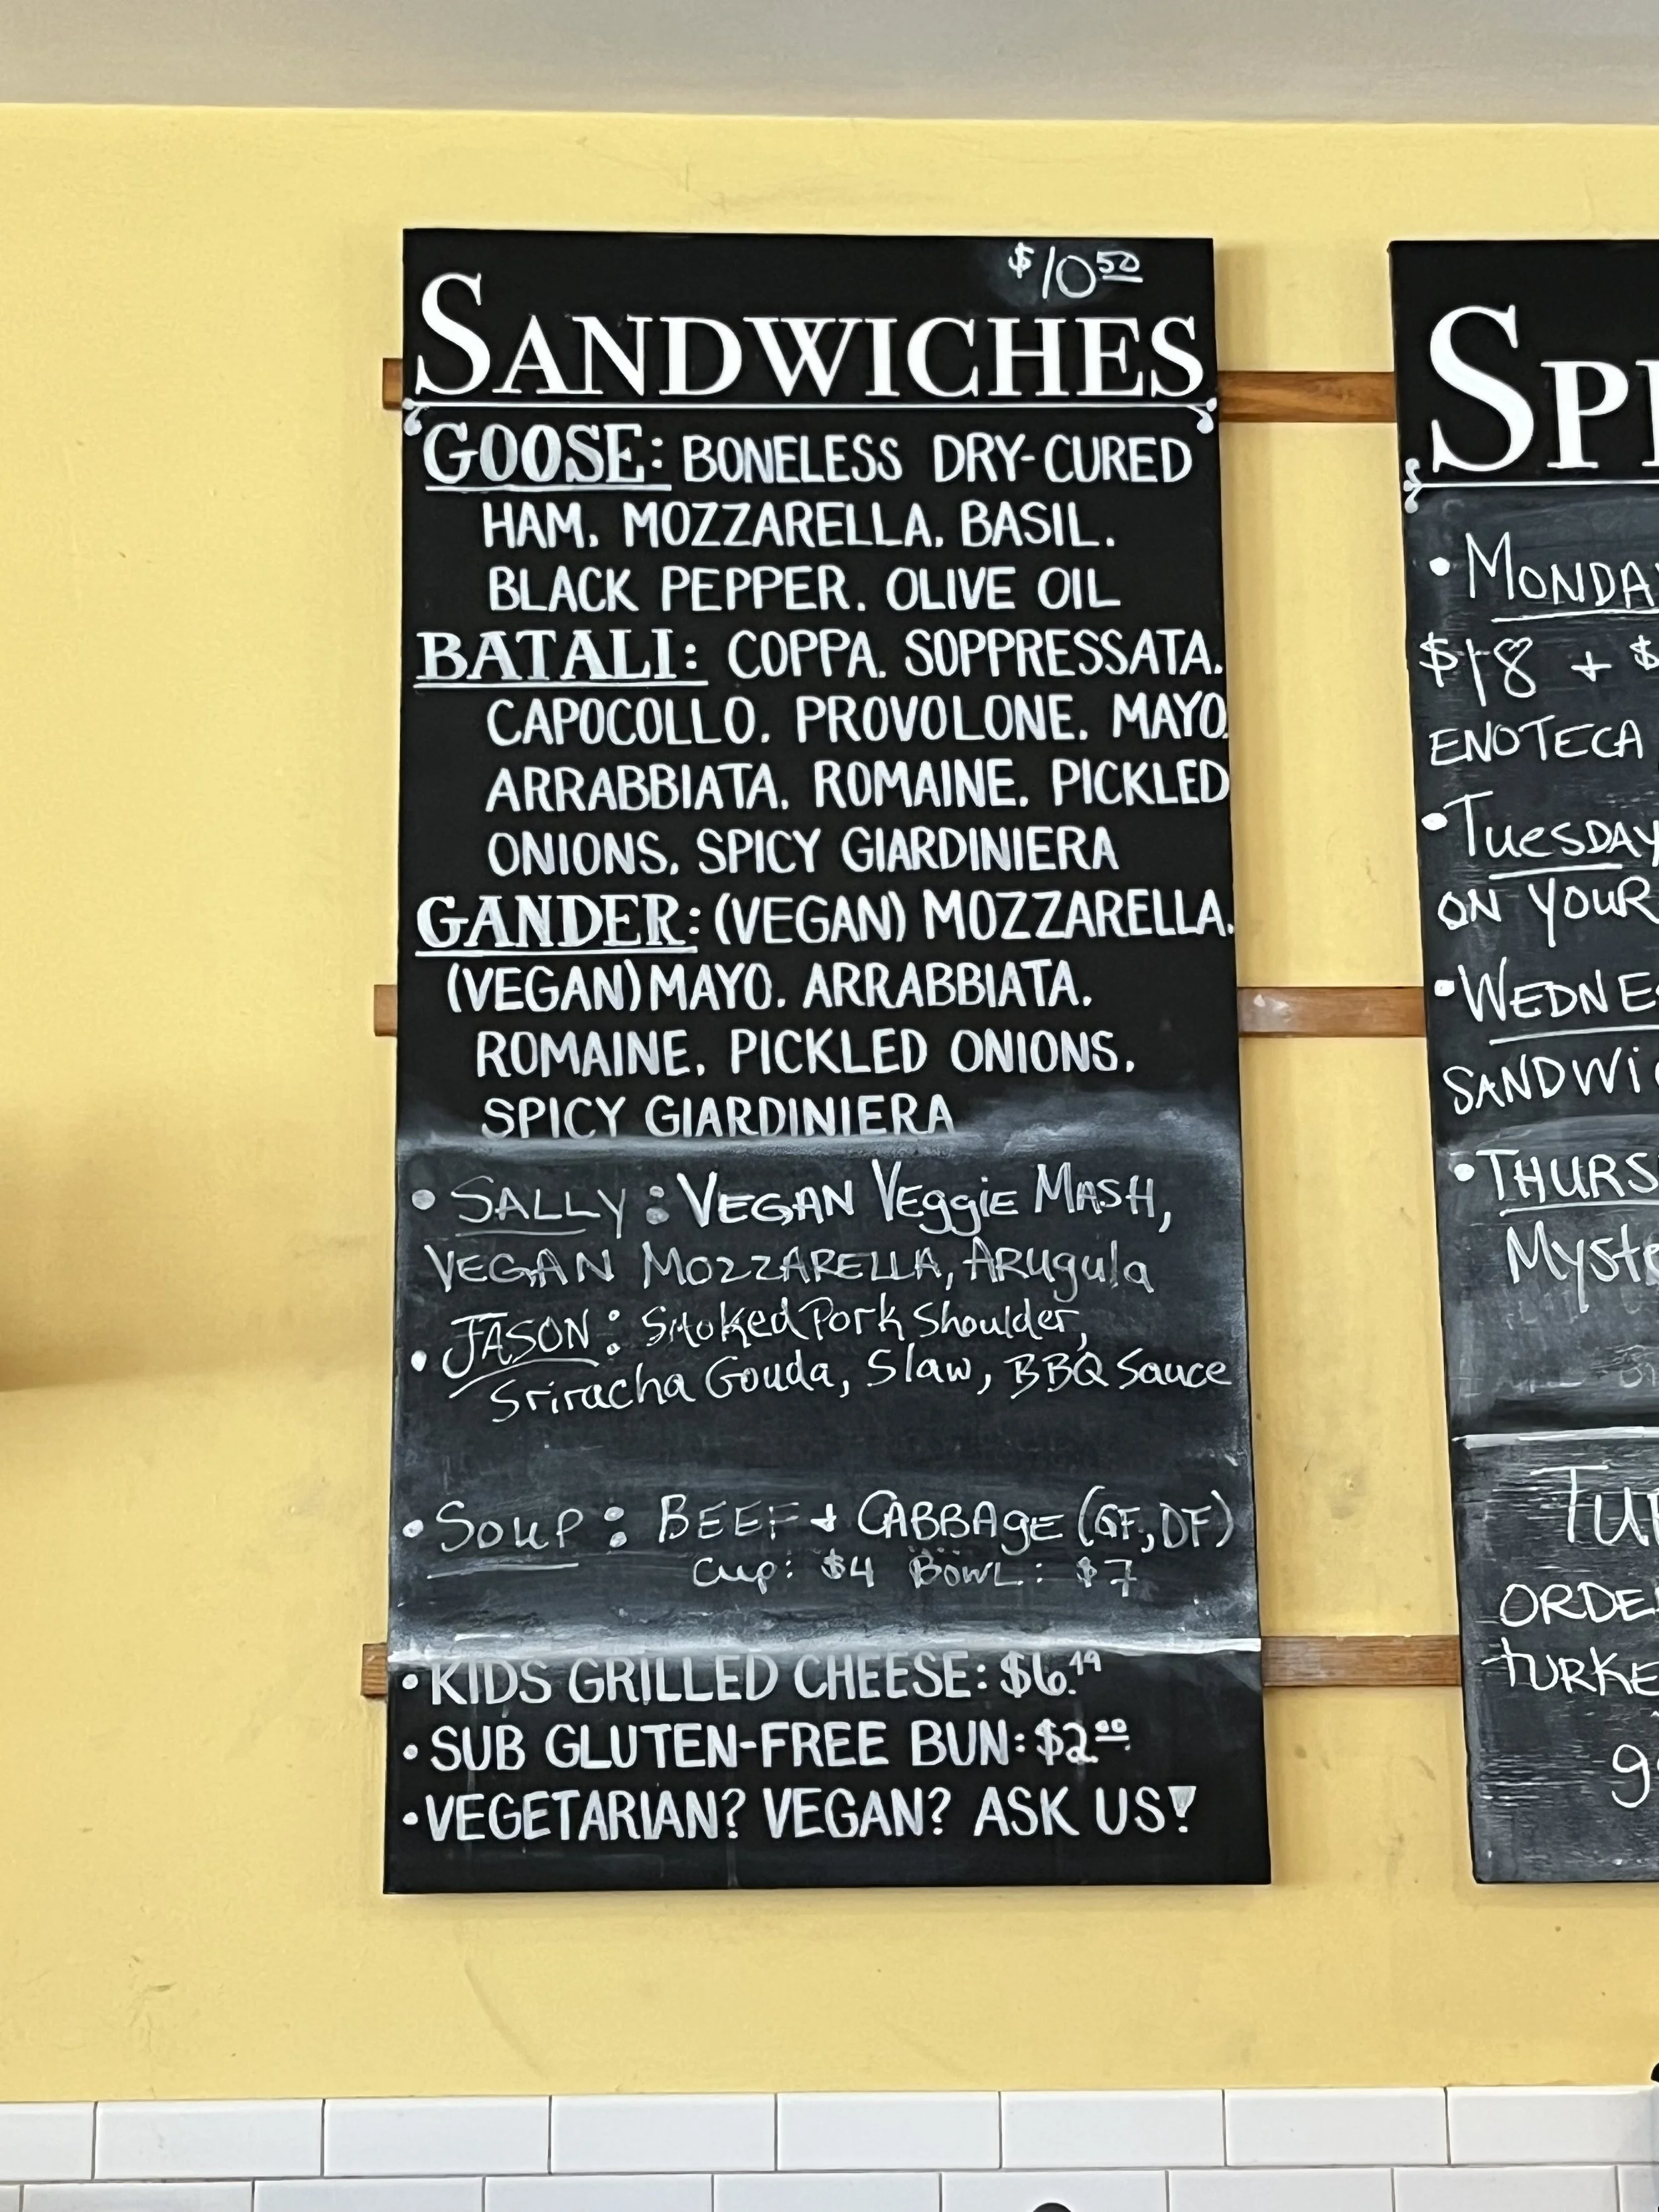 $10.50
SANDWICHES
GOOSE: BONELESS DRY-CURED
HAM. MOZZARELLA. BASIL.
BLACK PEPPER. OLIVE OIL
BATALI: COPPA. SOPPRESSATA.
CAPOCOLLO. PROVOLONE. MAYO.
ARRABBIATA. ROMAINE. PICKLED
ONIONS. SPICY GIARDINIERA
GANDER: (VEGAN) MOZZARELLA.
(VEGAN) MAYO. ARRABBIATA.
ROMAINE. PICKLED ONIONS.
SPICY GIARDINIERA
• SALLY: VEGAN Veggie MASH,
VEGAN MOZZARELLA, ARugula
• JASON: Smoked Pork Shoulder,
Sriracha Gouda, Slaw, BBQ Sauce
• Soup: BEEF + CABBAgE (GF, DF)
Cup: $4 BOWL: $7
• KIDS GRILLED CHEESE: $6.49
• SUB GLUTEN-FREE BUN: $2.00
• VEGETARIAN? VEGAN? ASK US!
SP
• MONDA
$18 + $
ENOTECA
• TuesDAY
ON YOUR
• WEDNES
SANDWIC
• THURS
Myste
TUR
ORDE
TURKE